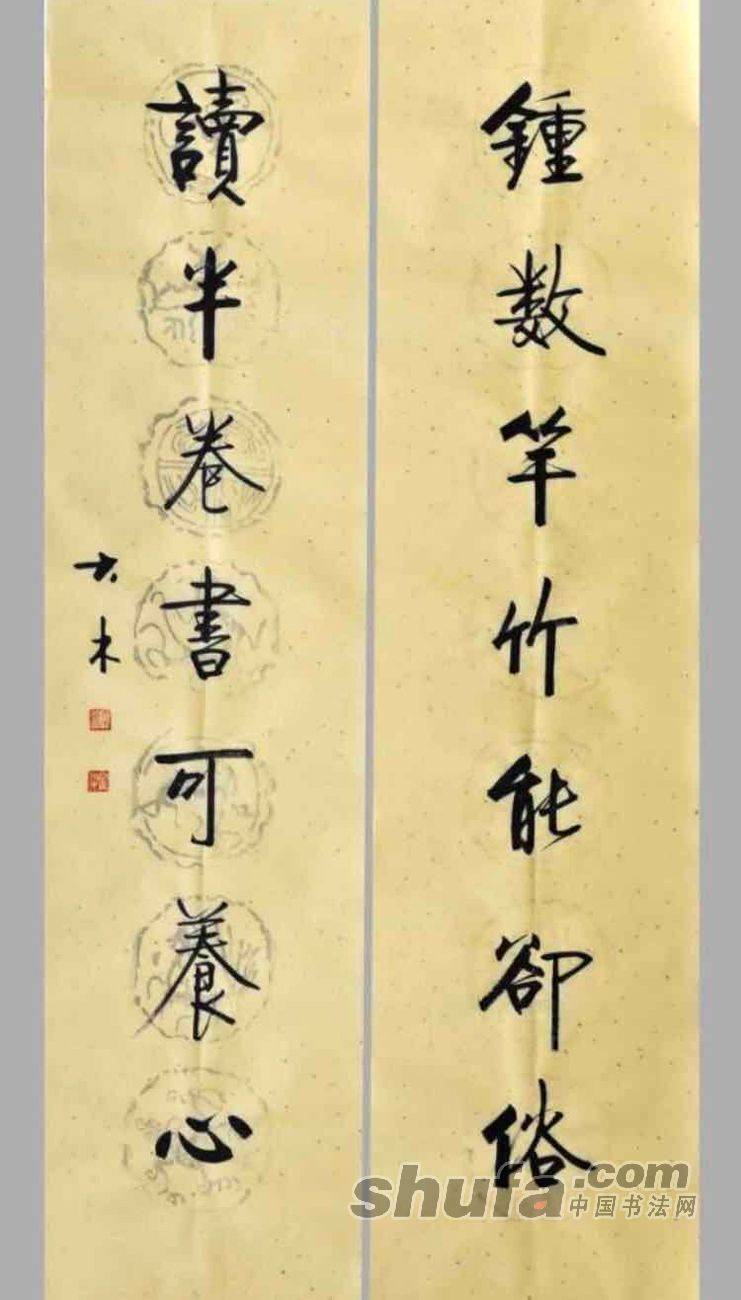 鍾数竿竹能卻俗
讀半卷書可養心
大木
shufa.com
中国书法网